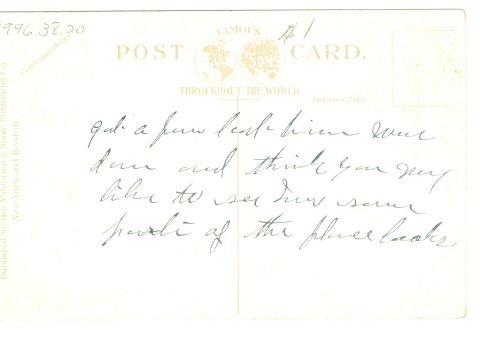 1996.38.20
$1
FAMOUS
POST CARD.
& SONS
THROUGHOUT THE WORLD.
Correspondence
Address Only
Published by the Valentine & Sons' Publishing Co.
New York and Boston
got a few last time was
down and think you may
like to see how some
parts of the place looks